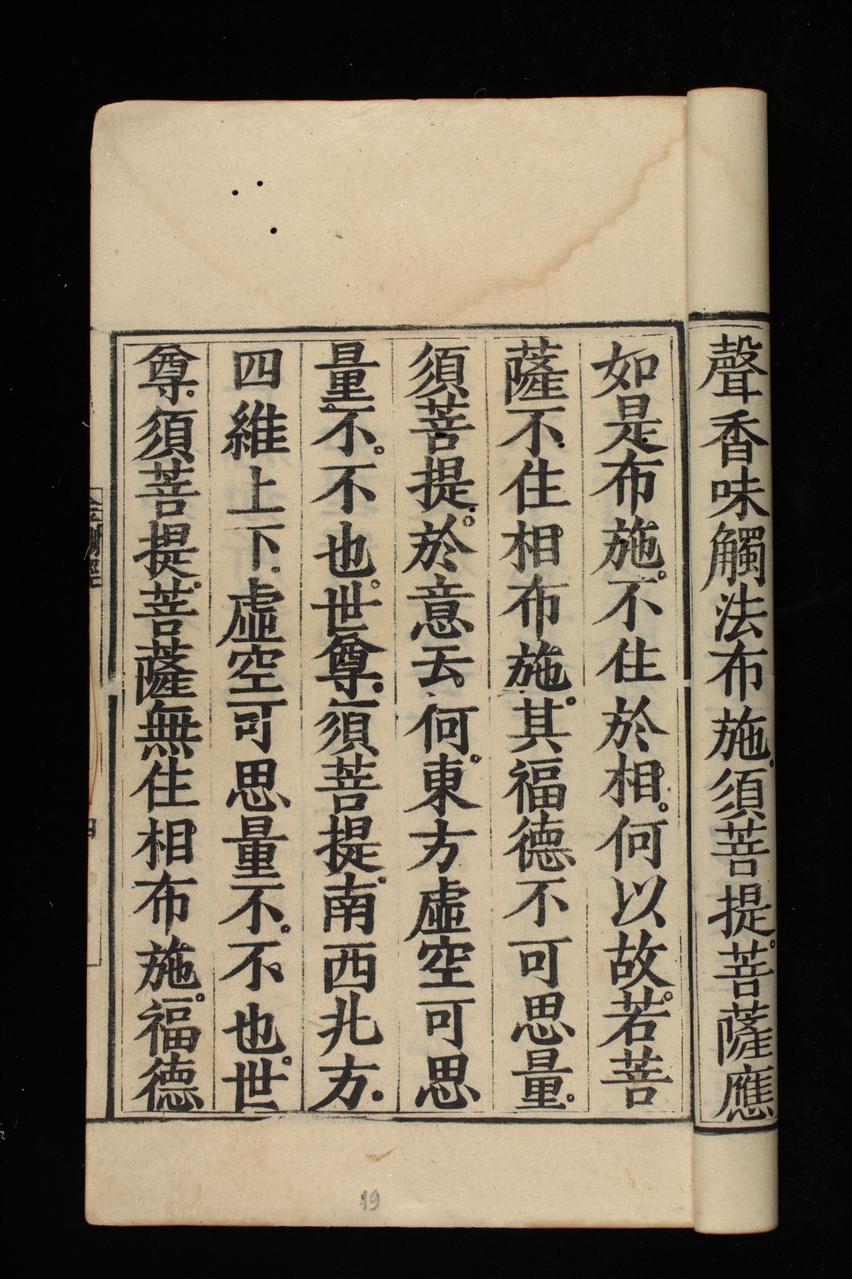 聲香味觸法布施須菩提。菩薩應
如是布施。不住於相。何以故。若菩
薩不住相布施。其福德不可思量。
須菩提。於意云何。東方虛空可思
量不。不也。世尊。須菩提。南西北方.
四維上下.虛空可思量不。不也。世
尊.須菩提。菩薩無住相布施。福德
19